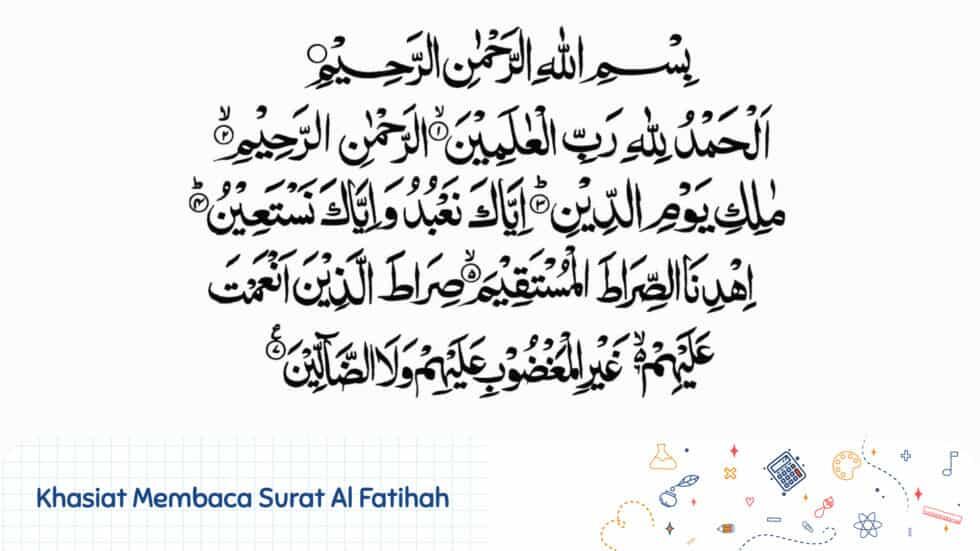 بِسْمِ اللهِ الرَّحْمٰنِ الرَّحِيْمِ
اَلْحَمْدُ لِلّٰهِ رَبِّ الْعٰلَمِيْنَ ۙ﴿۱﴾ الرَّحْمٰنِ الرَّحِيْمِ ۙ﴿۲﴾
مٰلِكِ يَوْمِ الدِّيْنِ ؕ﴿۳﴾ اِيَّاكَ نَعْبُدُ وَاِيَّاكَ نَسْتَعِيْنُ ؕ﴿۴﴾
اِهْدِنَا الصِّرَاطَ الْمُسْتَقِيْمَ ۙ﴿۵﴾ صِرَاطَ الَّذِيْنَ اَنْعَمْتَ
عَلَيْهِمْ ۙ۬ غَيْرِ الْمَغْضُوْبِ عَلَيْهِمْ وَلَا الضَّآلِّيْنَ ﴿۷﴾
Khasiat Membaca Surat Al Fatihah